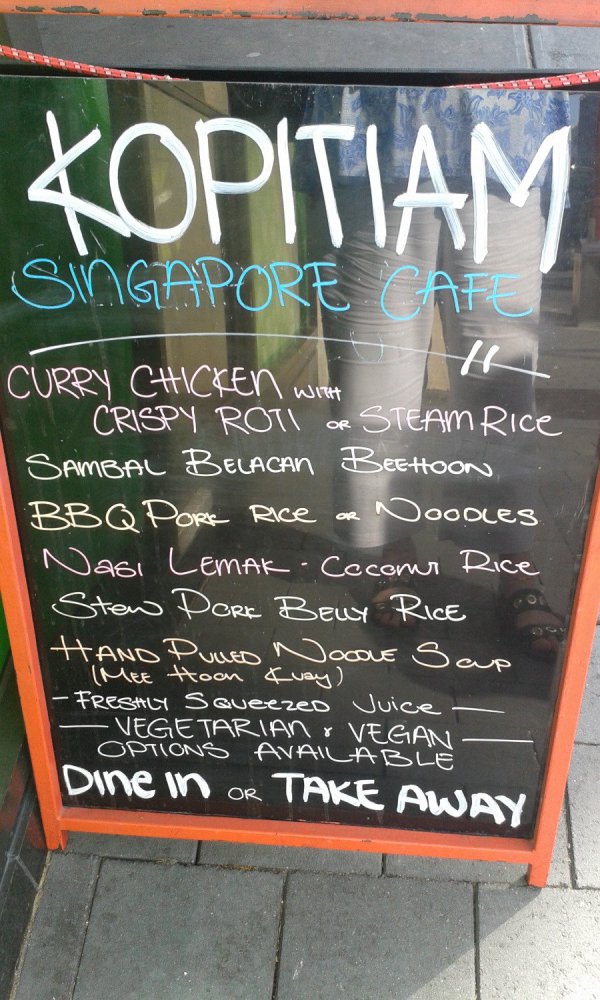 KOPITIAM
SINGAPORE CAFE
CURRY CHICKEN WITH
CRISPY ROTI OR STEAM RICE
SAMBAL BELACAN BEEHOON
BBQ PORK RICE OR NOODLES
NASI LEMAK - COCONUT RICE
STEW PORK BELLY RICE
HAND PULLED NOODLE SOUP
(MEE HOON KUAY)
- FRESHLY SQUEEZED JUICE -
- VEGETARIAN & VEGAN -
OPTIONS AVAILABLE
DINE IN OR TAKE AWAY